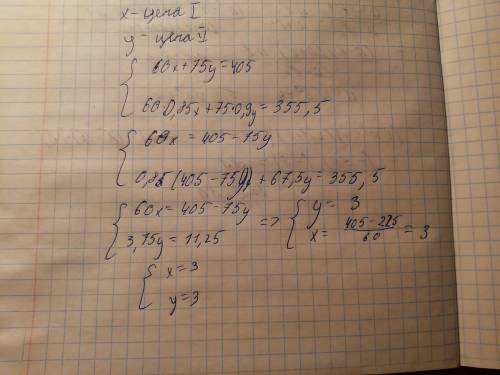 x - цена I
y - цена II
{ 60x+75y=405
60·0,85x+75·0,9y=355,5
{ 60x = 405-75y
0,85(405-75y)+67,5y=355,5
{ 60x=405-75y => { y= 3
3,75y=11,25 x= (405-225)/60 = 3
{ x=3
y=3